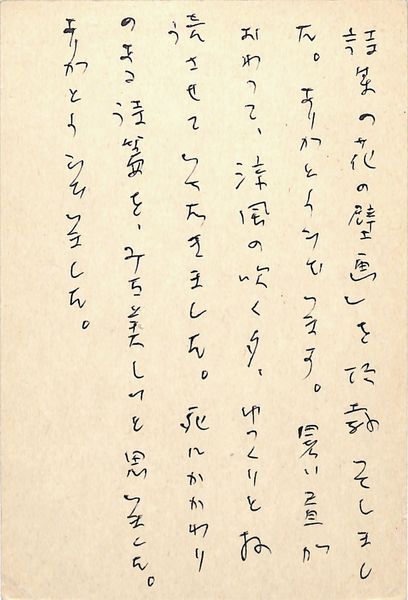 詩集の花の壁画」を頂戴そしまし
た。ありがとうございます。暑い昼が
おわって、涼風の吹く夕、ゆっくりとお
読させていただきました。死にかかわり
のある詩篇を、みな美しいと思いました。
ありがとうございました。